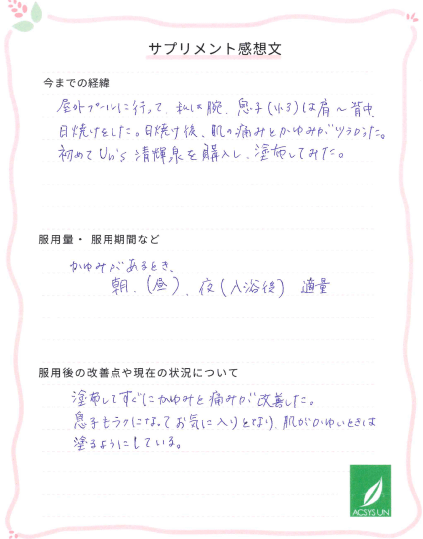 サプリメント感想文
今までの経緯
屋外プールに行って、私は腕、息子(小3)は肩〜背中、
日焼けをした。日焼け後、肌の痛みとかゆみがツラかった。
初めてUn's 清輝泉を購入し、塗布してみた。
服用量・服用期間など
かゆみがあるとき、
朝、(昼)、夜(入浴後) 適量
服用後の改善点や現在の状況について
塗布してすぐにかゆみと痛みが改善した。
息子もラクになってお気に入りとなり、肌がかゆいときは
塗るようにしている。
ACSYS UN